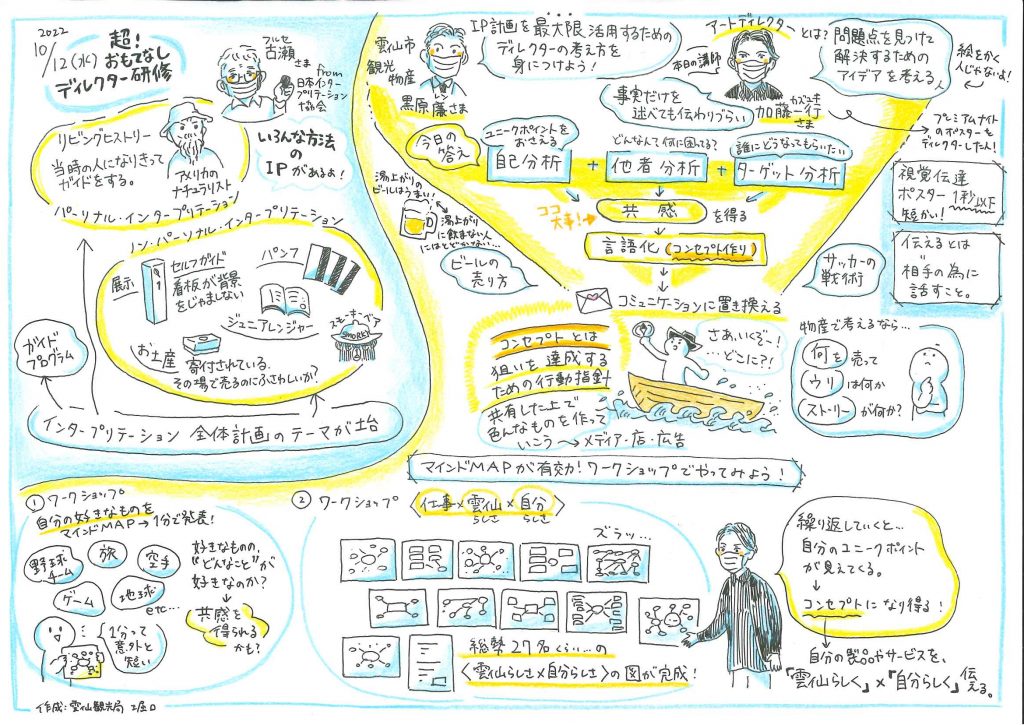 2022
10/12(水)
超！
おもてなし
ディレクター研修
フルセ
古瀬
さま
from
日本インター
プリテーション
協会
リビングヒストリー
当時の人になりきって
ガイドをする。
アメリカの
ナチュラリスト
パーソナル・インタープリテーション
いろんな方法
の
IPがあるよ！
ノン・パーソナル・インタープリテーション
展示
セルフガイド
看板が背景
をじゃましない
パンフ
ジュニアレンジャー
スモーキーベア
SMOKEY
お土産
寄付されている。
その場で売るのにふさわしいか？
ガイド
プログラム
インタープリテーション 全体計画のテーマが土台
雲仙市
観光
物産
レン
黒原廉さま
IP計画を最大限活用するための
ディレクターの考え方を
身につけよう！
アートディレクター
とは？
本日の講師
カズユキ
加藤一行
さま
問題点を見つけて
解決するための
アイデアを考える人
絵をかく
人じゃないよ！
プレミアムナイト
のポスターを
ディレクターしたん！
事実だけを
述べても伝わりづらい
今日の
答え
ユニークポイントを
おさえる
自己分析
+
どんなんて何に困ってる？
他者分析
+
誰にどうなってもらいたい
ターゲット分析
ココ
大事！→
共感
を得る
言語化(コンセプト作り)
コミュニケーションに置き換える
湯上がりの
ビールはうまい！
湯上がり
に飲まない人
にはとどかない…
ビールの
売り方
サッカーの
戦術
視覚伝達
ポスター1秒以下
短かい！
伝えるとは
相手の為に
話すこと。
コンセプトとは
狙いを達成する
ための行動指針
共有した上で
色んなものを作って
いこう→メディア・店・広告
さぁ、いくぞー！
…どこに？！
物産で考えるなら…
何を売って
ウリは何か
ストーリーが何か？
マインドMAPが有効！ワークショップでやってみよう！
①ワークショップ
自分の好きなものを
マインドMAP→1分で発表！
野球
チーム
旅
空手
ゲーム
地球
etc…
好きなものの、
"どんなこと"が
好きなのか？
共感を
得られる
かも？
1分って
意外と
短い
②ワークショップ
〈仕事×雲仙×自分〉
らしさ らしさ
ズラッ…
総勢27名くらい…の
〈雲仙らしさ×自分らしさ〉の図が完成！
繰り返していくと…
自分のユニークポイント
が見えてくる。
コンセプトになり得る！
自分の製品やサービスを、
「雲仙らしく」×「自分らしく」伝える。
作成：雲仙観光局